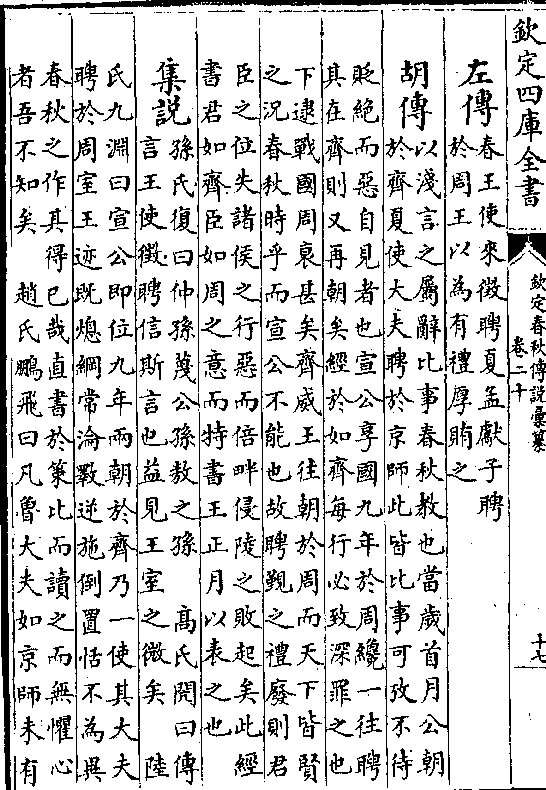 欽定四庫全書
欽定春秋傳說彙纂
卷二十
十七
左傳春王使來徵聘夏孟獻子聘
於周王以為有禮厚賄之
胡傳以淺言之屬辭比事春秋教也當歲首月公朝
於齊夏使大夫聘於京師此皆比事可攷不待
貶絶而惡自見者也宣公享國九年於周纔一往聘
其在齊則又再朝矣經於如齊每行必致深罪之也
下逮戰國周衰甚矣齊威王往朝於周而天下皆賢
之況春秋時乎而宣公不能也故聘覲之禮廢則君
臣之位失諸侯之行惡而倍畔侵陵之敗起矣此經
書君如齊臣如周之意而特書王正月以表之也
集說孫氏復曰仲孫蔑公孫敖之孫　髙氏閌曰傳
言王使徵聘信斯言也益見王室之微矣　陸
氏九淵曰宣公即位九年兩朝於齊乃一使其大夫
聘於周室王迹既熄綱常淪斁逆施倒置恬不為異
春秋之作其得已哉直書於策比而讀之而無懼心
者吾不知矣　趙氏鵬飛曰凡魯大夫如京師未有